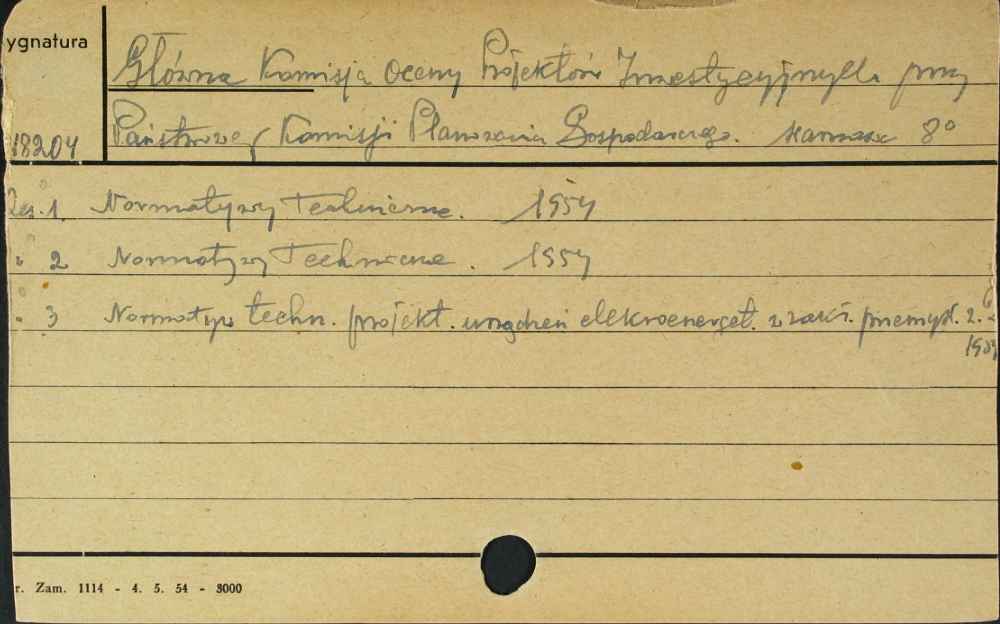 ygnatura
Główna Komisja Oceny Projektów Inwestycyjnych przy
18204 Państwowej Komisji Planowania Gospodarczego. Warszawa 8°
Zesz. 1. Normatywy Techniczne. 1954
" 2 Normatywy Techniczne. 1954
" 3 Normatyw techn. projekt. urządzeń elekroenerget. w zakł. przemysł.
r. Zam. 1114 - 4. 5. 54 - 3000